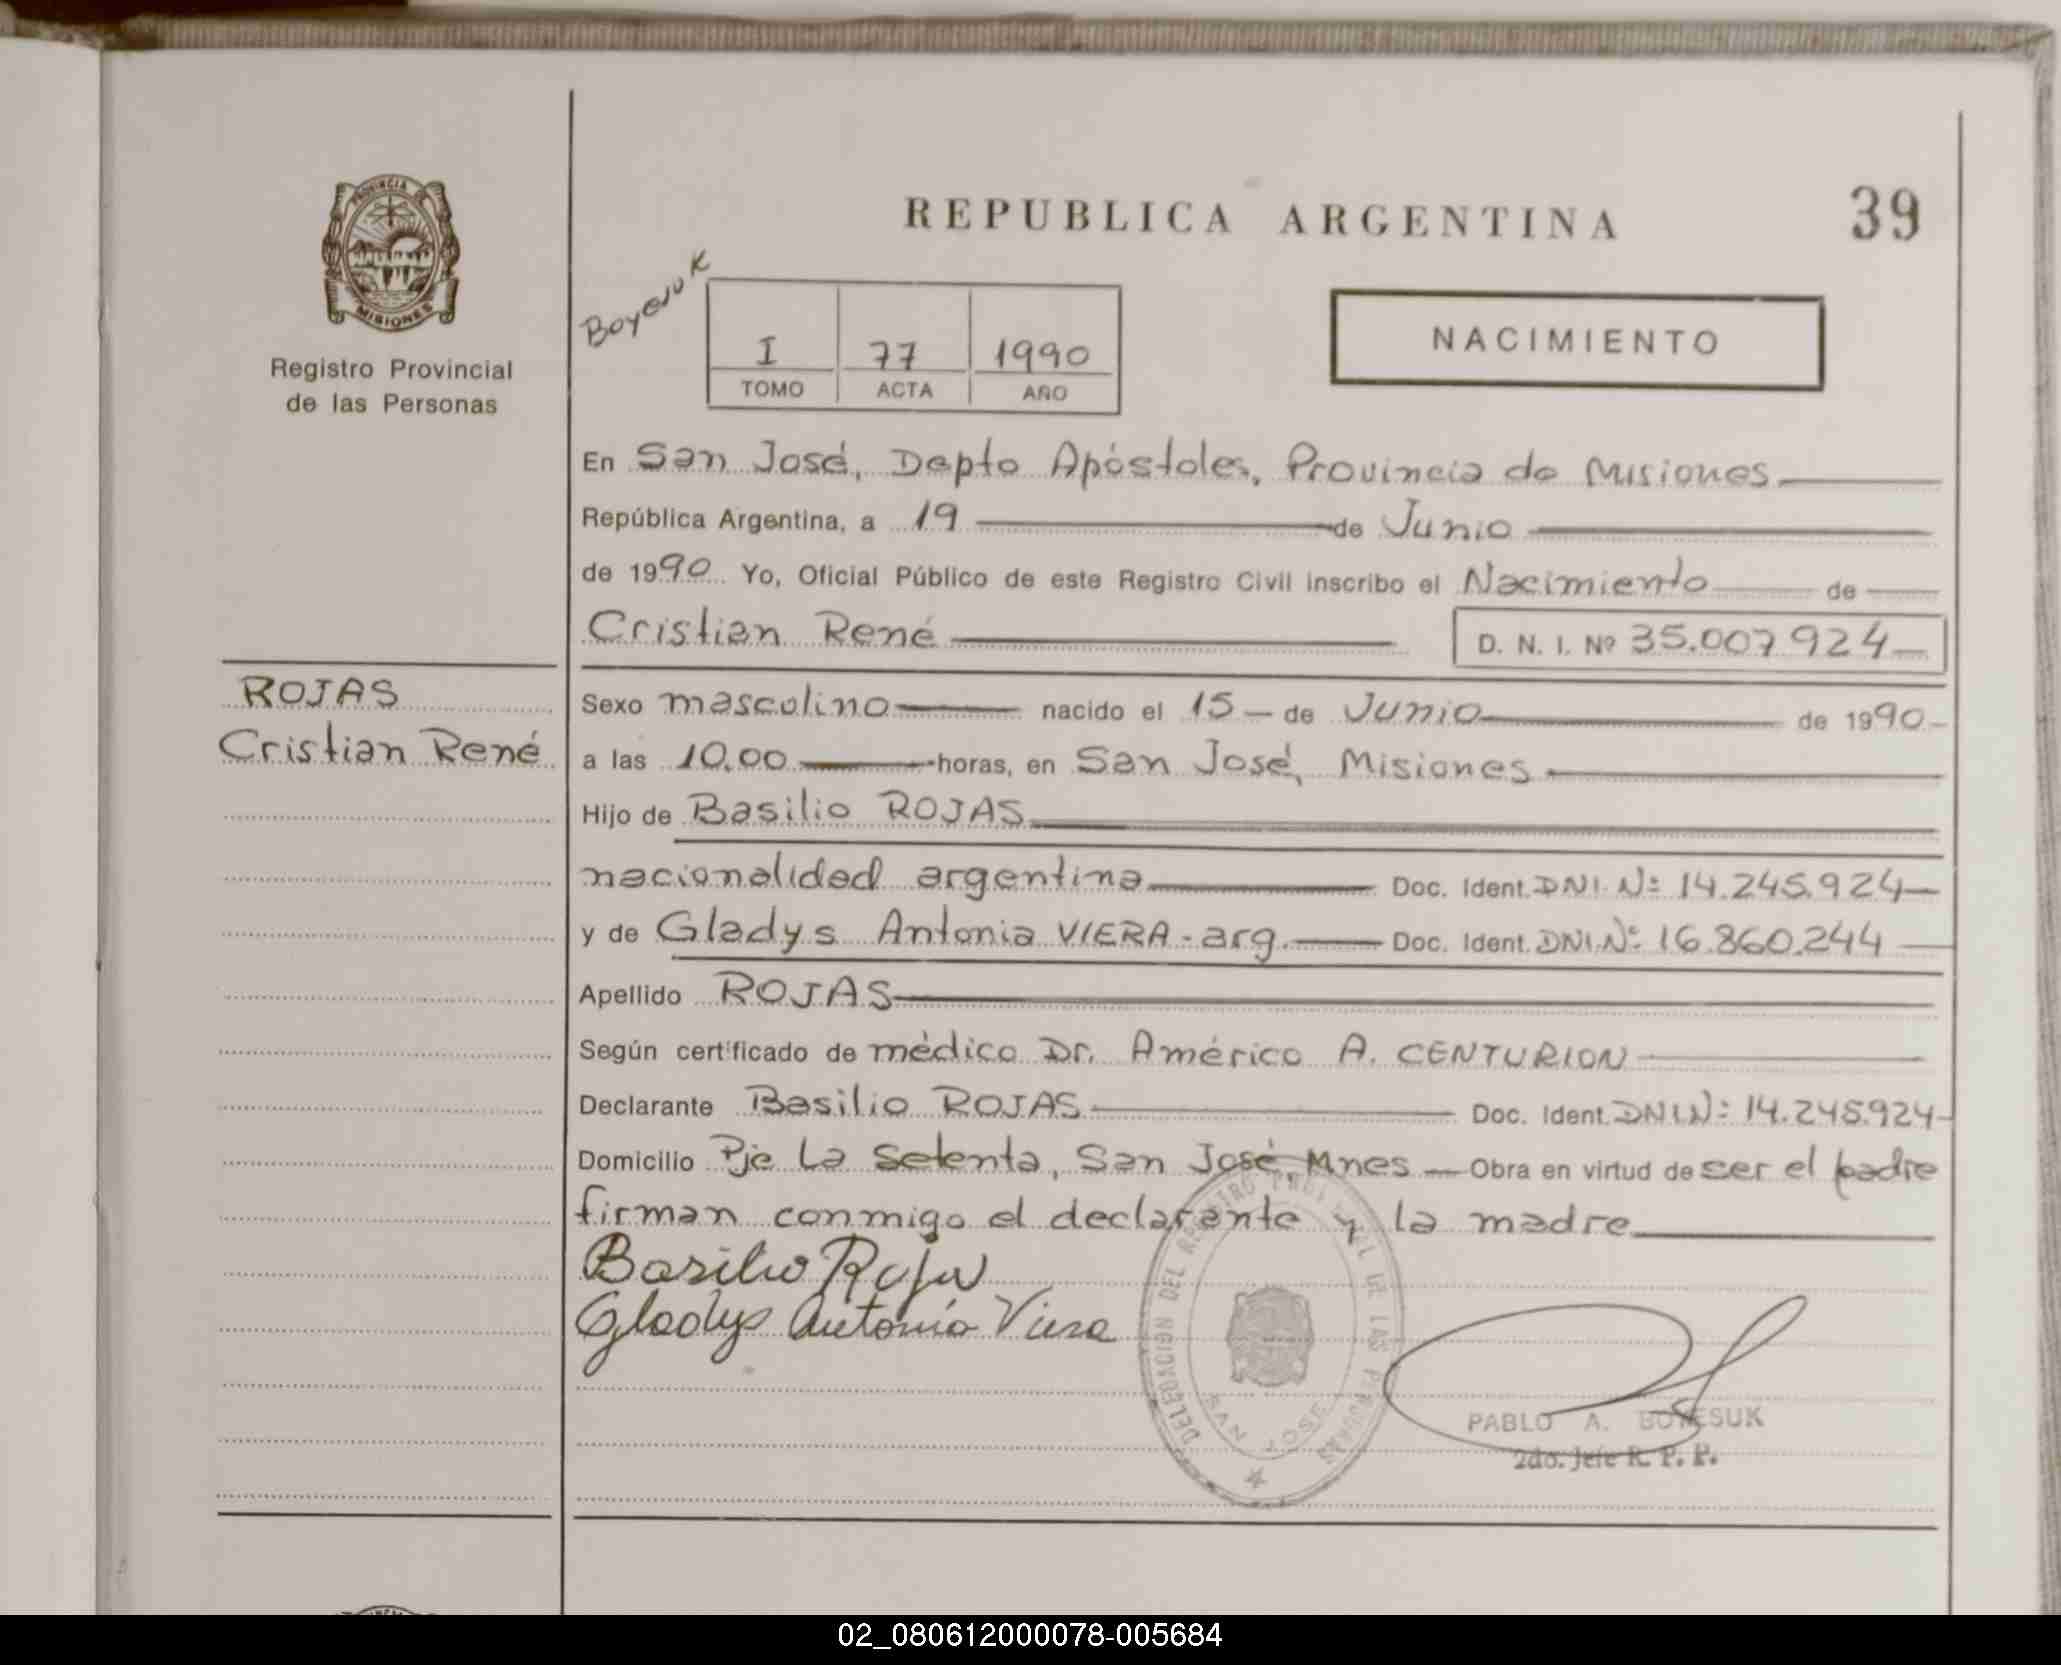 PROVINCIA DE
MISIONES
Registro Provincial
de las Personas
REPUBLICA ARGENTINA
39
Boyesuk
I 77 1990
TOMO ACTA AÑO
NACIMIENTO
En San José, Depto Apóstoles, Provincia de Misiones
República Argentina, a 19 de Junio
de 1990 Yo, Oficial Público de este Registro Civil inscribo el Nacimiento de
Cristian René D. N. I. Nº 35.007924
ROJAS
Cristian René
Sexo mascolino nacido el 15 de Junio de 1990
a las 10,00 horas, en San José, Misiones
Hijo de Basilio ROJAS
nacionalidad argentina Doc. Ident. DNI. Nº 14.245.924
y de Gladys Antonia VIERA - arg. Doc. Ident. DNI. Nº 16.860.244
Apellido ROJAS
Según certificado de médico Dr. Américo A. CENTURION
Declarante Basilio ROJAS Doc. Ident. DNI Nº 14.245.924
Domicilio Pje La Setenta, San José, Mnes Obra en virtud de ser el padre
firman conmigo el declarante y la madre
Basilio Rojas
Gladys Antonia Viera
DELEGACION DEL REGISTRO PROVINCIAL DE LAS PERSONAS
SAN JOSE
PABLO A. BOYESUK
2do. Jefe R. P. P.
02_080612000078-005684